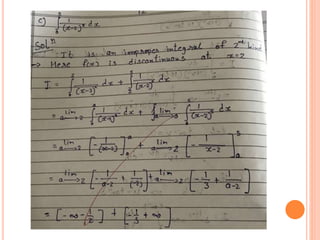 c) ∫ 1/(x-2)² dx
Solⁿ
→ It is an improper integral of 2ⁿᵈ kind
→ Here f(x) is discontinuous at x=2
I = ∫ 1/(x-2)² dx + ∫ 1/(x-2)² dx
= lim a→2 ∫ 1/(x-2)² dx + lim ∫ 1/(x-2)² dx
= lim a→2 [-1/(x-2)] + lim →2 [-1/x-2]
= lim a→2 [-1/a-2 + 1/(-2)] + lim a→2 [-1/3 + 1/a-2]
= [-∞-1/2] + [-1/3+∞]